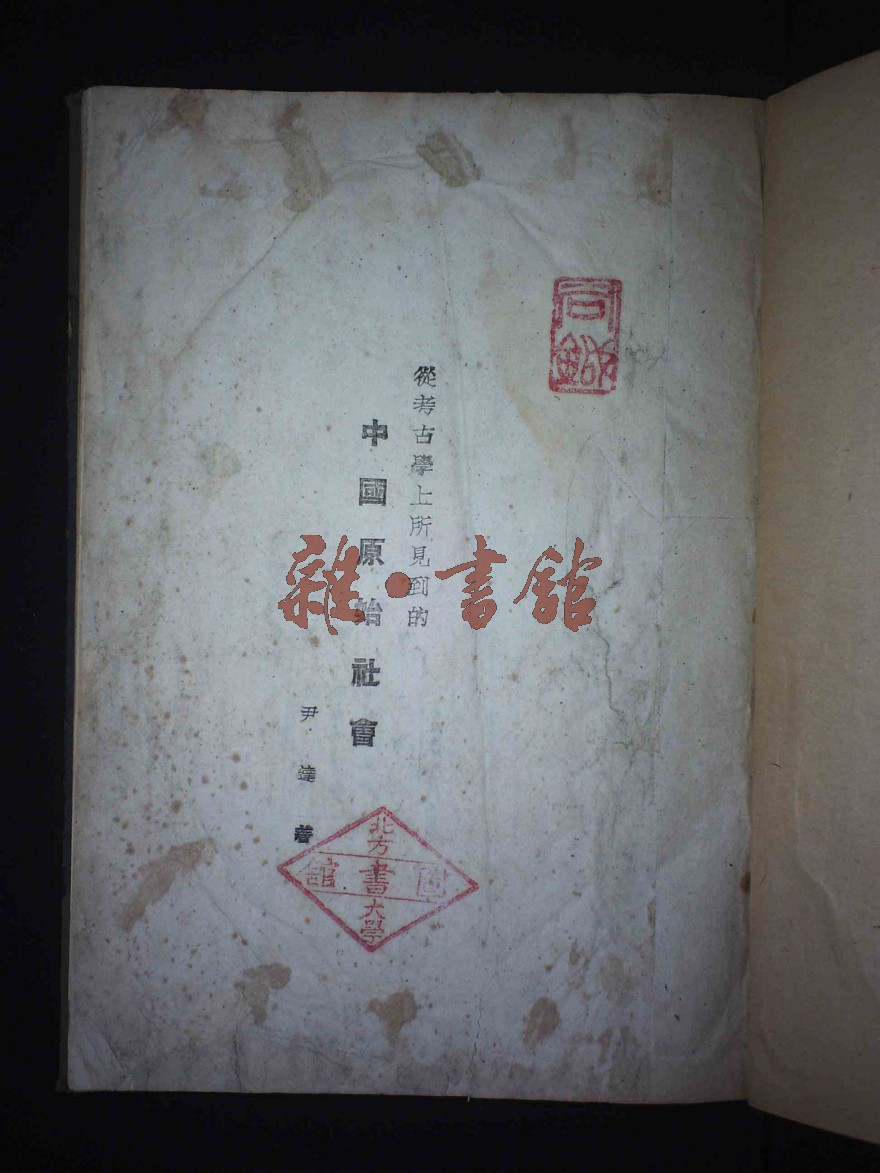 從考古學上所見到的
中國原始社會
尹達著
北方大學
圖書館
雜·書館